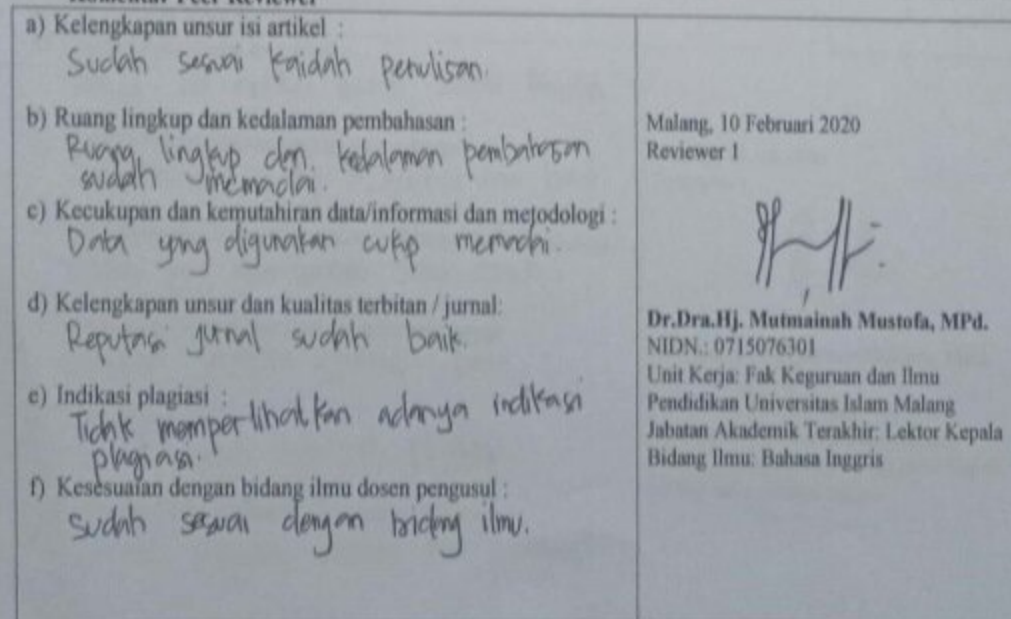 a) Kelengkapan unsur isi artikel :
Sudah sesuai kaidah penulisan.
b) Ruang lingkup dan kedalaman pembahasan :
Ruang lingkup dan kedalaman pembahasan
sudah memadai.
c) Kecukupan dan kemutahiran data/informasi dan metodologi :
Data yang digunakan cukup memadai.
d) Kelengkapan unsur dan kualitas terbitan / jurnal:
Reputasi jurnal sudah baik.
e) Indikasi plagiasi :
Tidak memperlihatkan adanya indikasi
plagiasi.
f) Kesesuaian dengan bidang ilmu dosen pengusul :
Sudah sesuai dengan bidang ilmu.
Malang, 10 Februari 2020
Reviewer 1
Dr.Dra.Hj. Mutmainah Mustofa, MPd.
NIDN.: 0715076301
Unit Kerja: Fak Keguruan dan Ilmu
Pendidikan Universitas Islam Malang
Jabatan Akademik Terakhir: Lektor Kepala
Bidang Ilmu: Bahasa Inggris